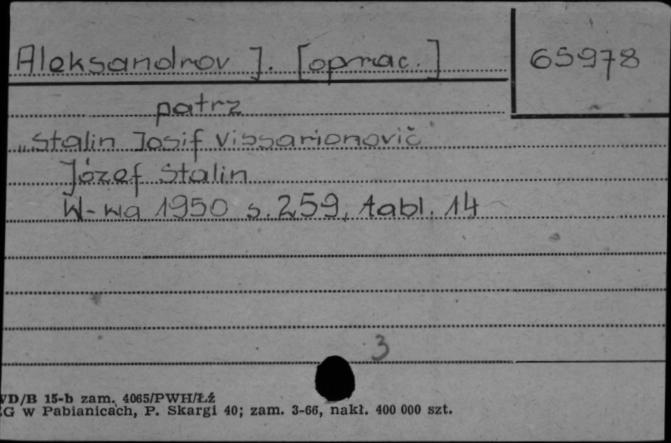 Aleksandrov J. [oprac.] 65978
patrz
„Stalin Josif Vissarionovič
Józef Stalin
W-wa 1950 s. 259, tabl. 14
3
VD/B 15-b zam. 4065/PWH/Łż
G w Pabianicach, P. Skargi 40; zam. 3-66, nakł. 400 000 szt.